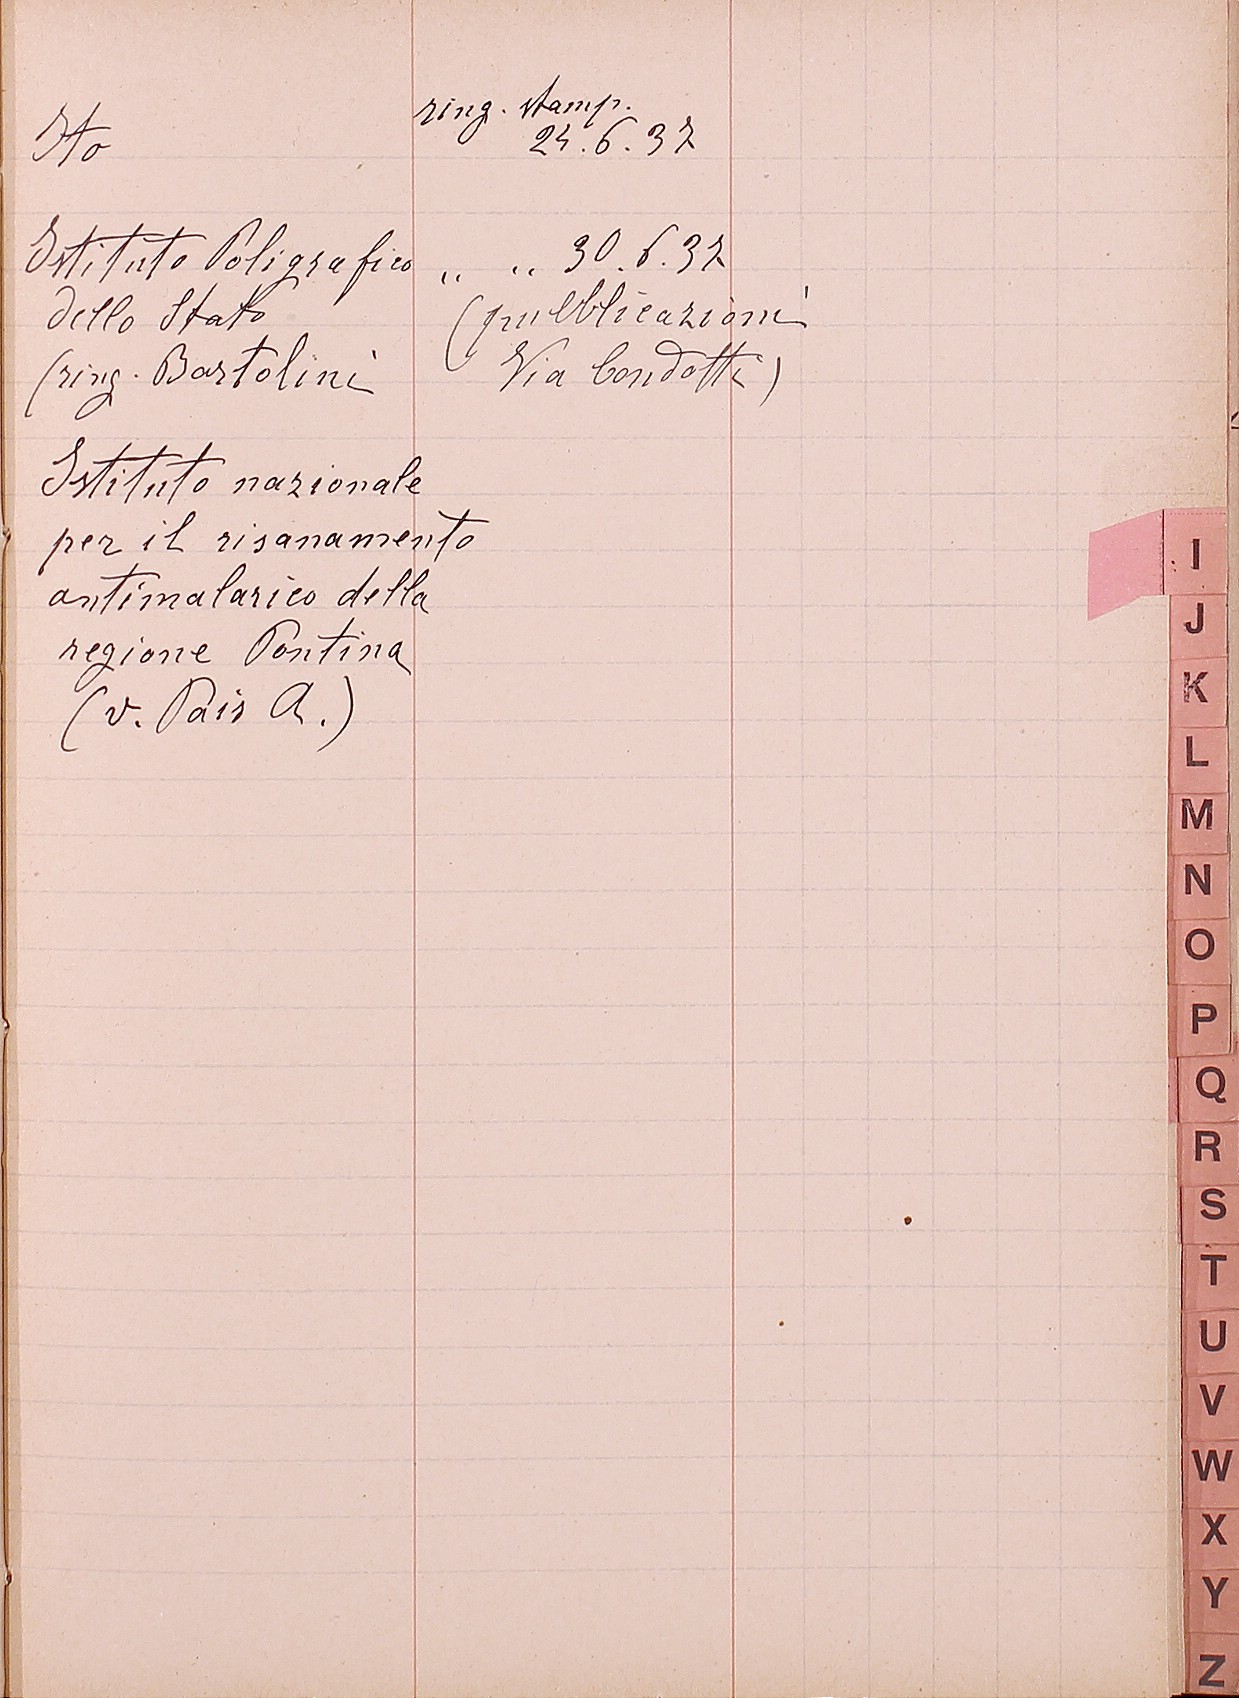 ring. stamp.
Ito 24.6.37
Istituto Poligrafico „ „ 30.6.37
dello Stato (pubblicazioni
(ring. Bartolini Via Condotti)
Istituto nazionale
per il risanamento
antimalarico della
regione Pontina
(v. Pais A.)
I
J
K
L
M
N
O
P
Q
R
S
T
U
V
W
X
Y
Z